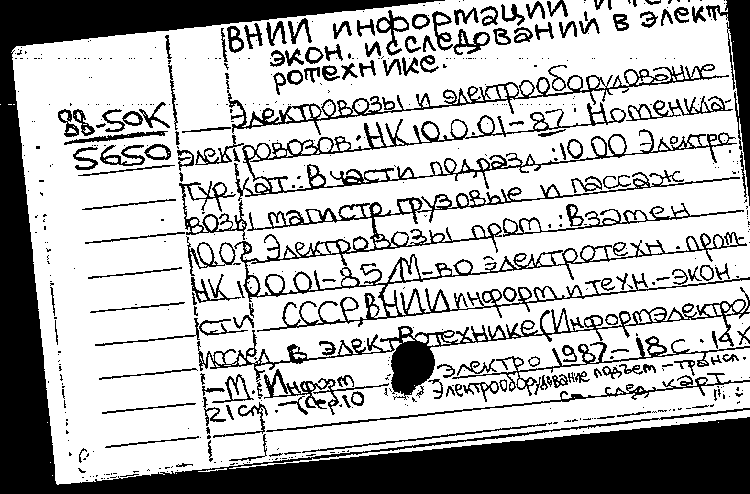 ВНИИ информации и техн
экон. исследований в элект-
ротехнике.
88-50К
5650
Электровозы и электрооборудование
электровозов: НК 10.0.01-87 Номенкла-
тур. кат.: В части подразд.: 10.00 Электро-
возы магистр. грузовые и пассаж
10.02 Электровозы пром.: Взамен
НК 10.0.01-85/М-во электротехн. пром-
сти СССР, ВНИИ информ. и техн.-экон.
исслед. в электротехнике (Информэлектро)
-М.: Информ электро, 1987.-18 с. 14Х
21 см. -(Сер. 10 Электрооборудование подъем.-трансп.
см. след. карт.